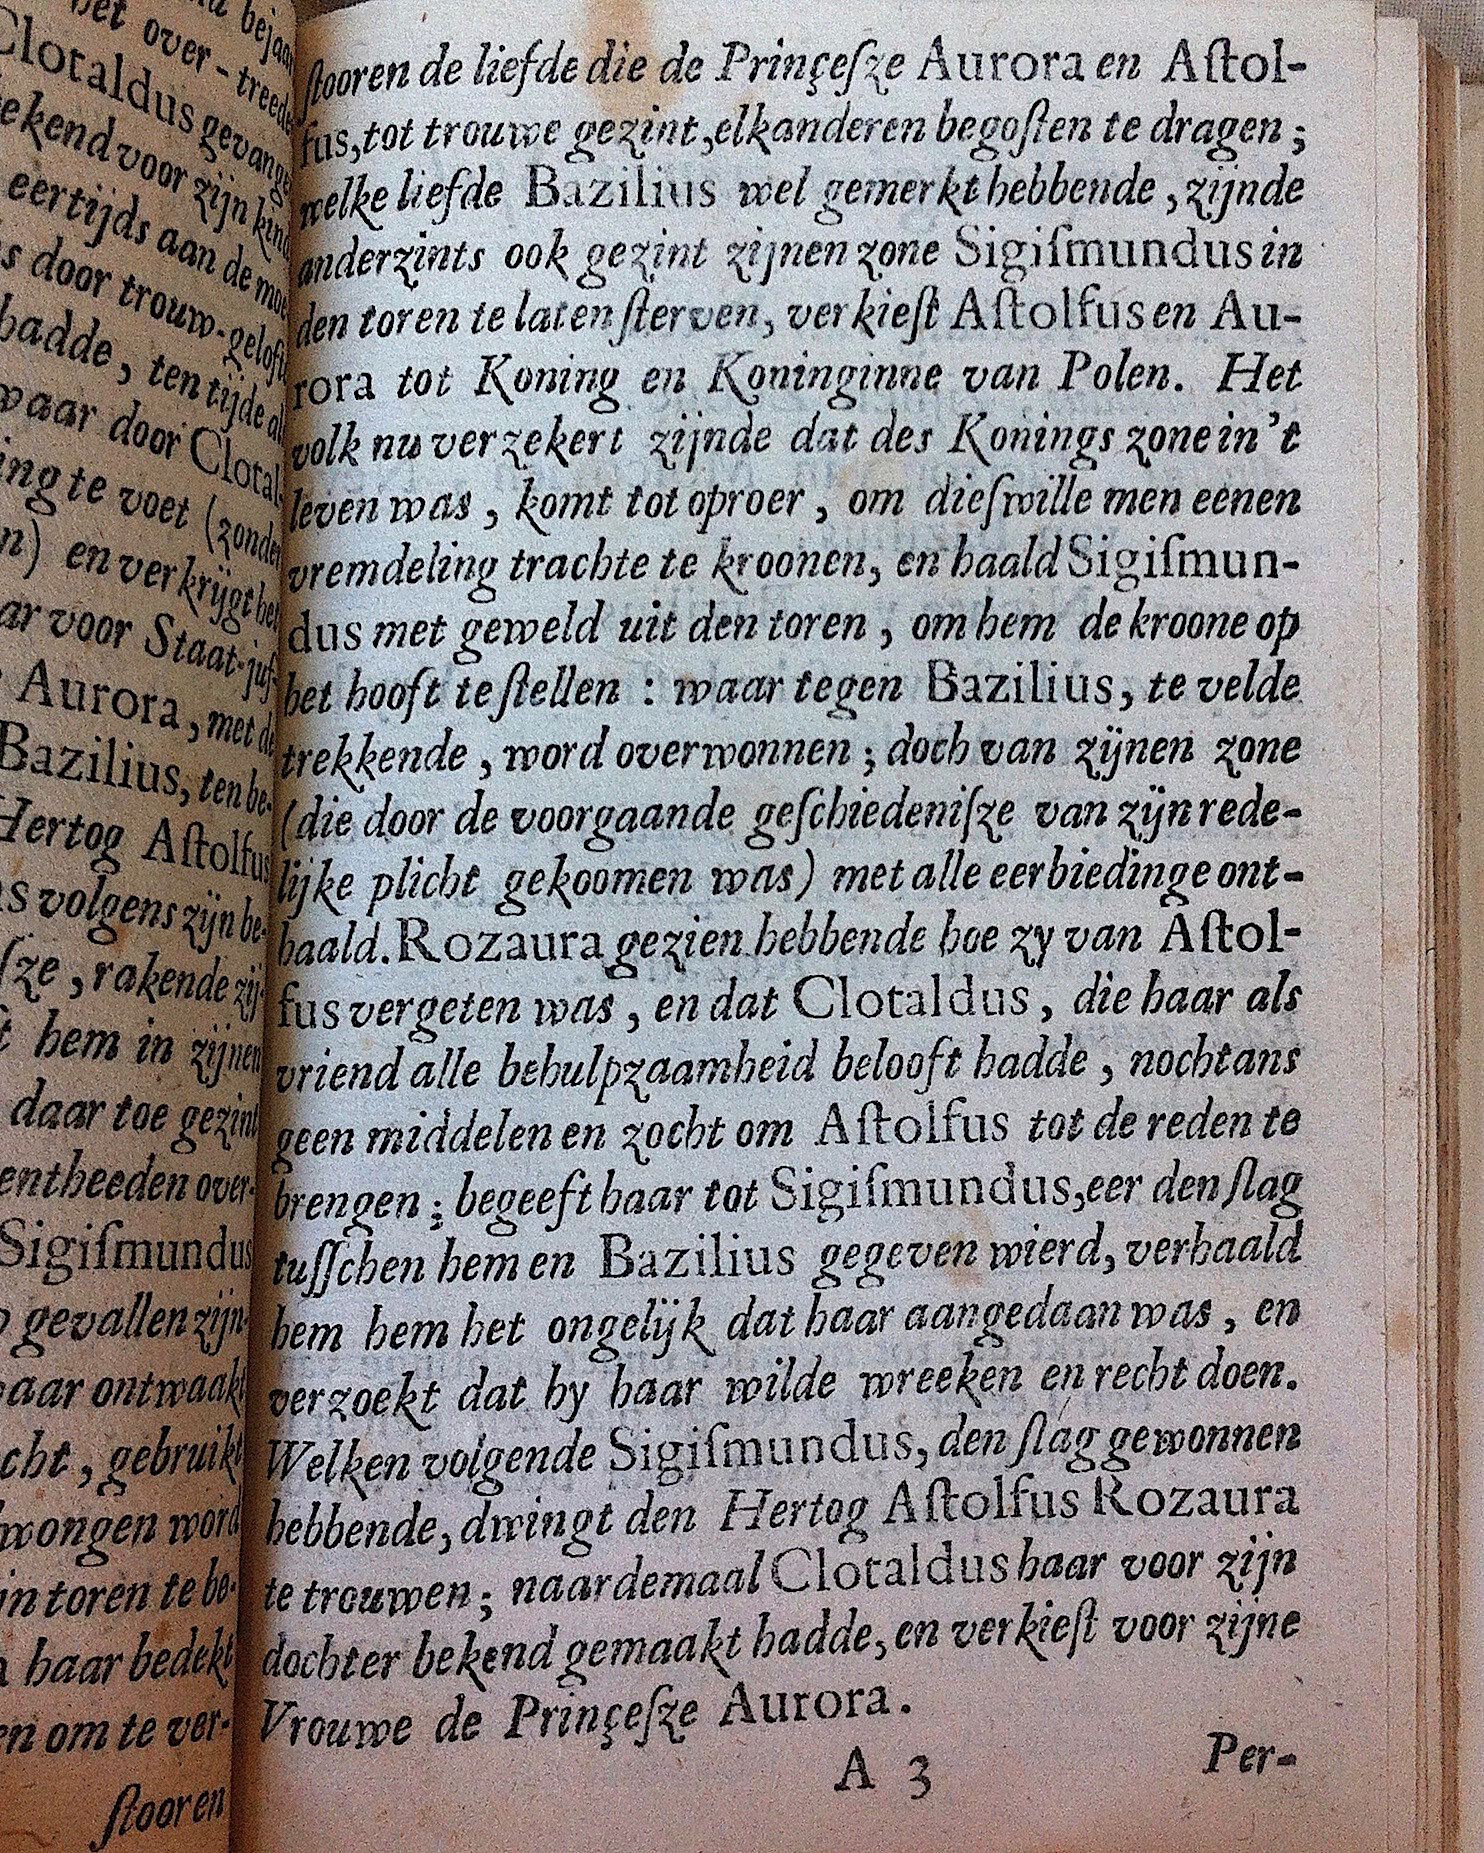 bejaar
het over-treede
Clotaldus gevange
ekend voor zijn kind
eertijds aan de moe
s door trouw-gelofte
hadde, ten tijde al
waar door Clotal-
ing te voet (zonder
n) en verkrijgt het
ar voor Staat-juf-
Aurora, met de
Bazilius, ten be-
Hertog Aſtolfus
s volgens zijn be-
ſze, rakende zij-
hem in zijnen
daar toe gezint
entheeden over-
Sigiſmundus
gevallen zijn-
aar ontwaakt
cht, gebruikt
wongen word
in toren te be-
haar bedekt
en om te ver-
ſtooren
ſtooren de liefde die de Prinçeſze Aurora en Aſtol-
fus, tot trouwe gezint, elkanderen begoſten te dragen;
welke liefde Bazilius wel gemerkt hebbende, zijnde
anderzints ook gezint zijnen zone Sigiſmundus in
den toren te laten ſterven, verkieſt Aſtolfus en Au-
rora tot Koning en Koninginne van Polen. Het
volk nu verzekert zijnde dat des Konings zone in't
leven was, komt tot oproer, om dieſwille men eenen
vremdeling trachte te kroonen, en haald Sigiſmun-
dus met geweld uit den toren, om hem de kroone op
het hooft te ſtellen: waar tegen Bazilius, te velde
trekkende, word overwonnen; doch van zijnen zone
(die door de voorgaande geſchiedeniſze van zijn rede-
lijke plicht gekoomen was) met alle eerbiedinge ont-
haald. Rozaura gezien hebbende hoe zy van Aſtol-
fus vergeten was, en dat Clotaldus, die haar als
vriend alle behulpzaamheid belooft hadde, nochtans
geen middelen en zocht om Aſtolfus tot de reden te
brengen; begeeft haar tot Sigiſmundus, eer den ſlag
tuſſchen hem en Bazilius gegeven wierd, verhaald
hem hem het ongelijk dat haar aangedaan was, en
verzoekt dat hy haar wilde wreeken en recht doen.
Welken volgende Sigiſmundus, den ſlag gewonnen
hebbende, dwingt den Hertog Aſtolfus Rozaura
te trouwen; naardemaal Clotaldus haar voor zijn
dochter bekend gemaakt hadde, en verkieſt voor zijne
Vrouwe de Prinçeſze Aurora.
A 3 Per-